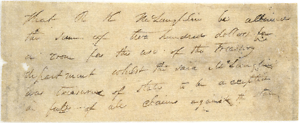 That R. K. McLaughlin be allowed
the sum of two hundred dollars for
a room for the use of the Treasury
department whilst the said McLaughlin
was treasurer of state to be accepted
in full of all claims against the